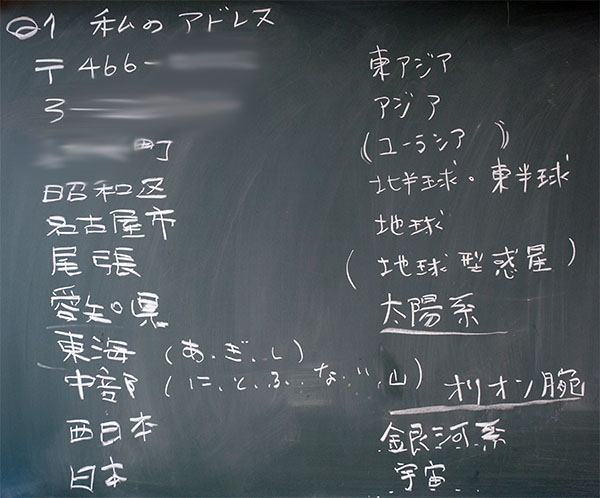 Q1 私のアドレス
〒466-
3
町
昭和区
名古屋市
尾張
愛知県
東海 (あ、ぎ、し)
中部 (に、と、ふ、な、い、山)
西日本
日本
東アジア
アジア
(ユーラシア)
北半球・東半球
地球
(地球型惑星)
太陽系
オリオン腕
銀河系
宇宙